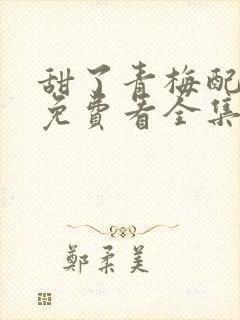 甜了青梅配
免费看全集
鄭柔美